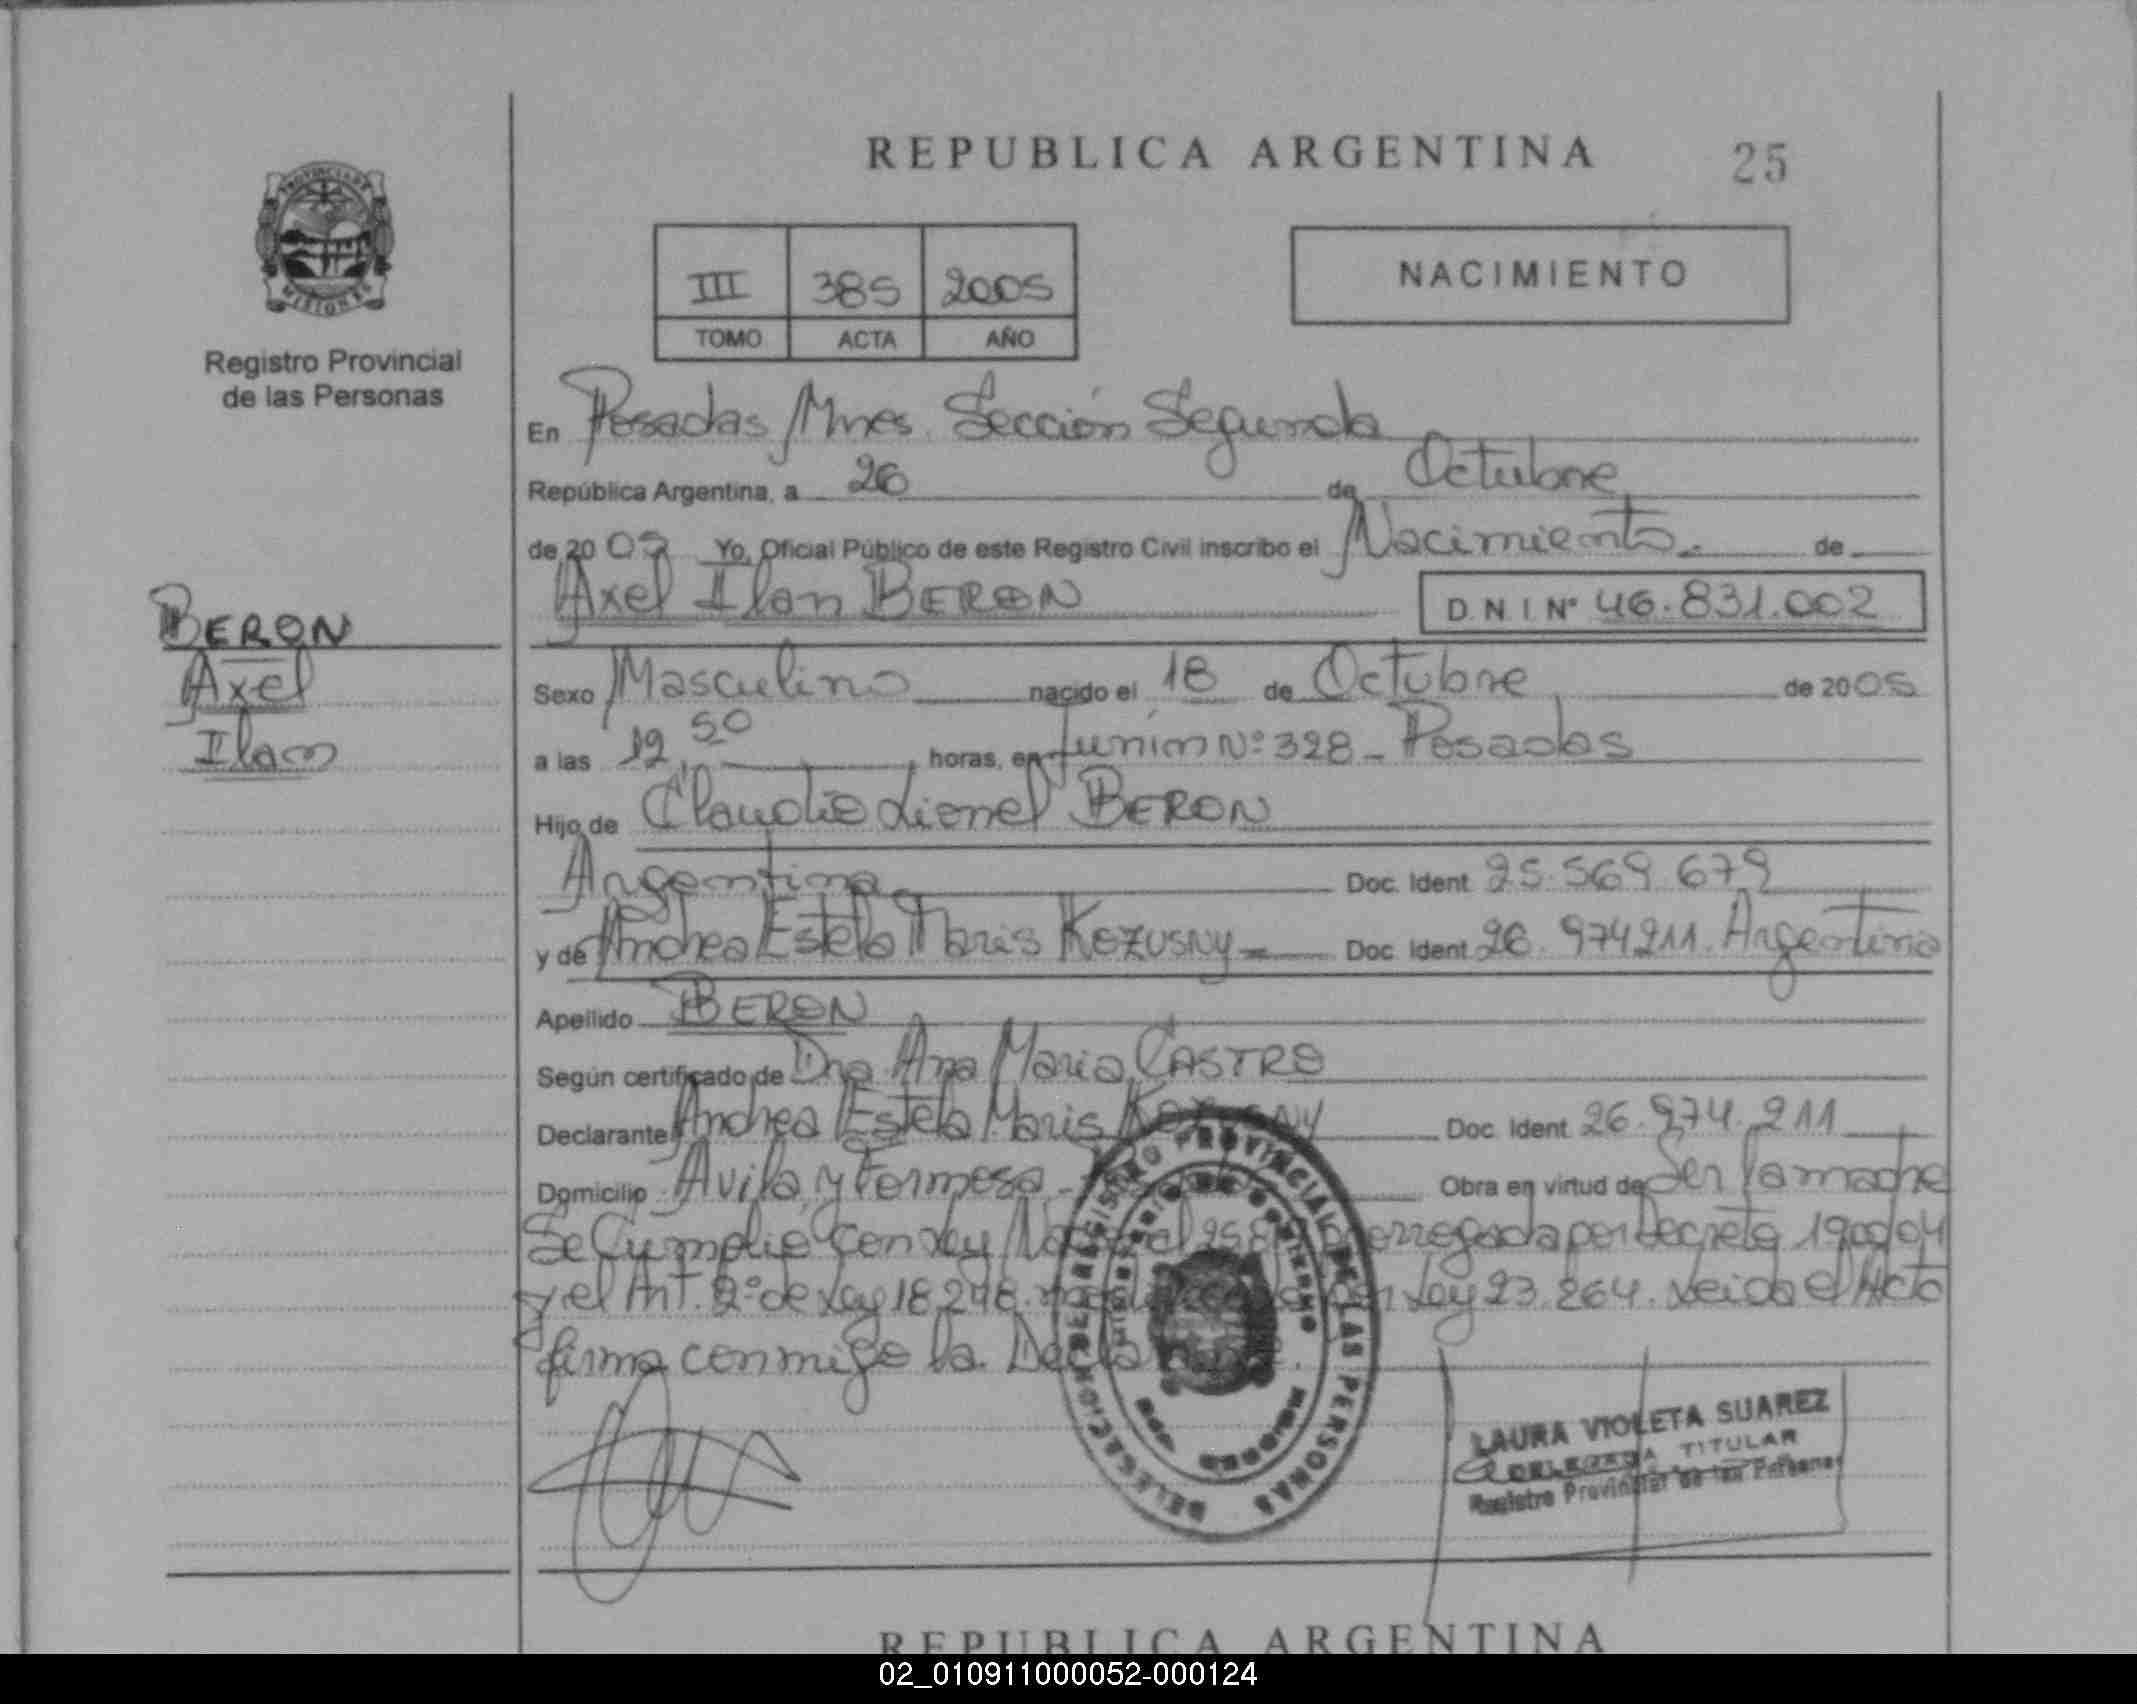 REPUBLICA ARGENTINA
25
PROVINCIA DE
MISIONES
Registro Provincial
de las Personas
III 385 2005
TOMO ACTA AÑO
NACIMIENTO
En Posadas Mnes. Sección Segunda
República Argentina, a 26 de Octubre
de 20 05 Yo, Oficial Público de este Registro Civil inscribo el Nacimiento de
Axel Ilan BERON
D.N.I Nº 46.831.002
BERON
Axel
Ilan
Sexo Masculino nacido el 18 de Octubre de 2005
a las 12,50 horas, en Junín Nº 328 - Posadas
Hijo de Claudio Lionel BERON
Argentina Doc. Ident 25.569.679
y de Andrea Estela Maris KOZUSNY Doc. Ident 26.974211. Argentina
Apellido BERON
Según certificado de Dra Ana Maria CASTRO
Declarante Andrea Estela Maris KOZUSNY Doc. Ident 26.974.211
Domicilio Avila y Formosa - Obra en virtud de Ser la madre
Se Cumplio con Ley por Decreto 1900/04
y el Art. 2º de Ley 18.248. Ley 23.264. Leida el Acta
firma conmigo la
DELEGACION DEL REGISTRO PROVINCIAL DE LAS PERSONAS
LAURA VIOLETA SUAREZ
DELEGADA TITULAR
Registro Provincial de las Personas
REPUBLICA ARGENTINA
02_010911000052-000124